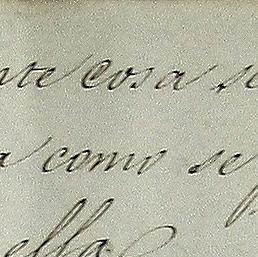 nte cosa se
a como se
ella